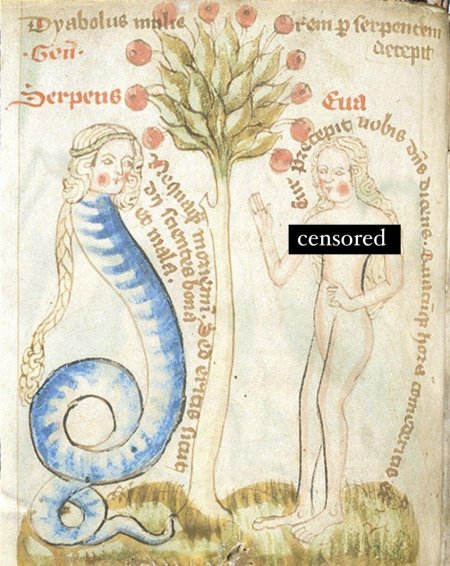 Dyabolus mulie rem p serpentem
decepit
Serpens Eua
Nequaqꝫ Sed eritis sicut
dii scientes bonū
et malū.
Cur precepit vobis dn̄s dicens. hora comederitis
censored